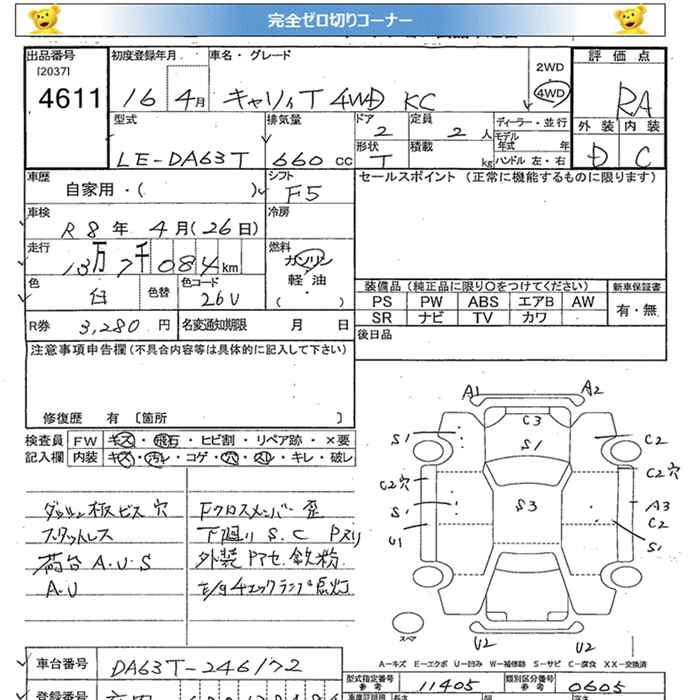 完全ゼロ切りコーナー
出品番号 初度登録年月 車名・グレード 評価点
[2037] 2WD
4611 16 4月 キャリィT 4WD KC 4WD RA
型式 排気量 ドア 2 定員 2 人 ディーラー・並行 外装 内装
モデル年式 年
LE-DA63T 660 cc 形状 T 積載 kg ハンドル 左・右 D C
車歴 自家用・( ) シフト F5 セールスポイント (正常に機能するものに限ります)
車検 R8年 4月(26日) 冷房
走行 13万7千084km 燃料 ガソリン
軽油
( ・ )
色 白 色替 色コード 26U 装備品 (純正品に限り〇をつけてください) 新車保証書
PS PW ABS エアB AW 有・無
SR ナビ TV カワ
R券 3,280 円 名変通知期限 月 日 後日品
注意事項申告欄 (不具合内容等は具体的に記入して下さい)
修復歴 有 〔箇所 〕
検査員 FW キズ・飛石・ヒビ割・リペア跡・×要
記入欄 内装 キズ・汚レ・コゲ・穴・スレ・キレ・破レ
ダッシュ板ビス穴 Fクロスメンバー歪
スタットレス 下廻り S.C Pヌリ
荷台 A.U.S 外装Pアセ.鉄粉
A.U E/g4エックランプ点灯
A1 A2
C3
S1 S1 C2
C2穴 C2穴
S1 S3 A3
C2
U1 S1
スペア
U2 U2
A−キズ E−エクボ U−凹み W−補修跡 S−サビ C−腐食 XX−交換済
車台番号 DA63T-246172 型式指定番号 参考 11405 類別区分番号 参考 0605
登録番号